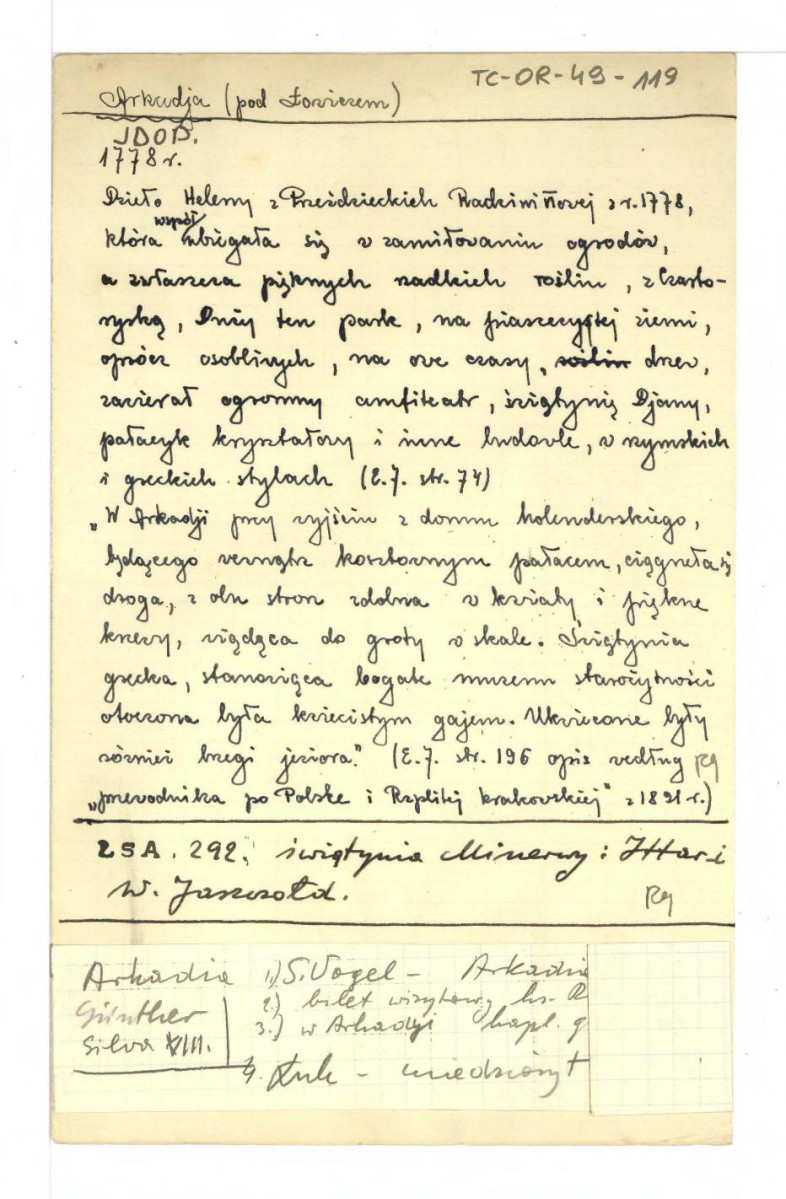 TC-OR-49-119
Arkadja (pod Łowiczem)
JDOP.
1778 r.
Dzieło Heleny z Przeździeckich Radziwiłłowej z r. 1778,
która współubiegała się w zamiłowaniu ogrodów,
a zwłaszcza pięknych rzadkich roślin, z Czarto-
ryską, Duży ten park, na piaszczystej ziemi,
oprócz osobliwych, na owe czasy, roślin drzew,
zawierał ogromny amfiteatr, świątynię Djany,
pałacyk kryształowy i inne budowle, w rzymskich
i greckich stylach (E.J. str. 74)
„W Arkadji przy wyjściu z domu holenderskiego,
będącego wewnątrz kosztownym pałacem, ciągnęła się
droga, z obu stron zdobna w kwiaty i piękne
krzewy, wiądąca do groty w skale. Świątynia
grecka, stanowiąca bogate muzeum starożytności
otoczona była kwiecistym gajem. Ukwiecone były
również brzegi jeziora." (E.J. str. 196 opis według Rg
„przewodnika po Polsce i Rzplitej krakowskiej" z 1821 r.)
LSA. 292. świątynia Minerwy:
W. Jaszczołd. Rg
Arkadia 1.) S. Vogel - Arkadia
Günther 2.) bilet wizytowy ks. R
Silva VIII. 3.) w Arkadji kapl. g
4. Łuk - miedzioryt